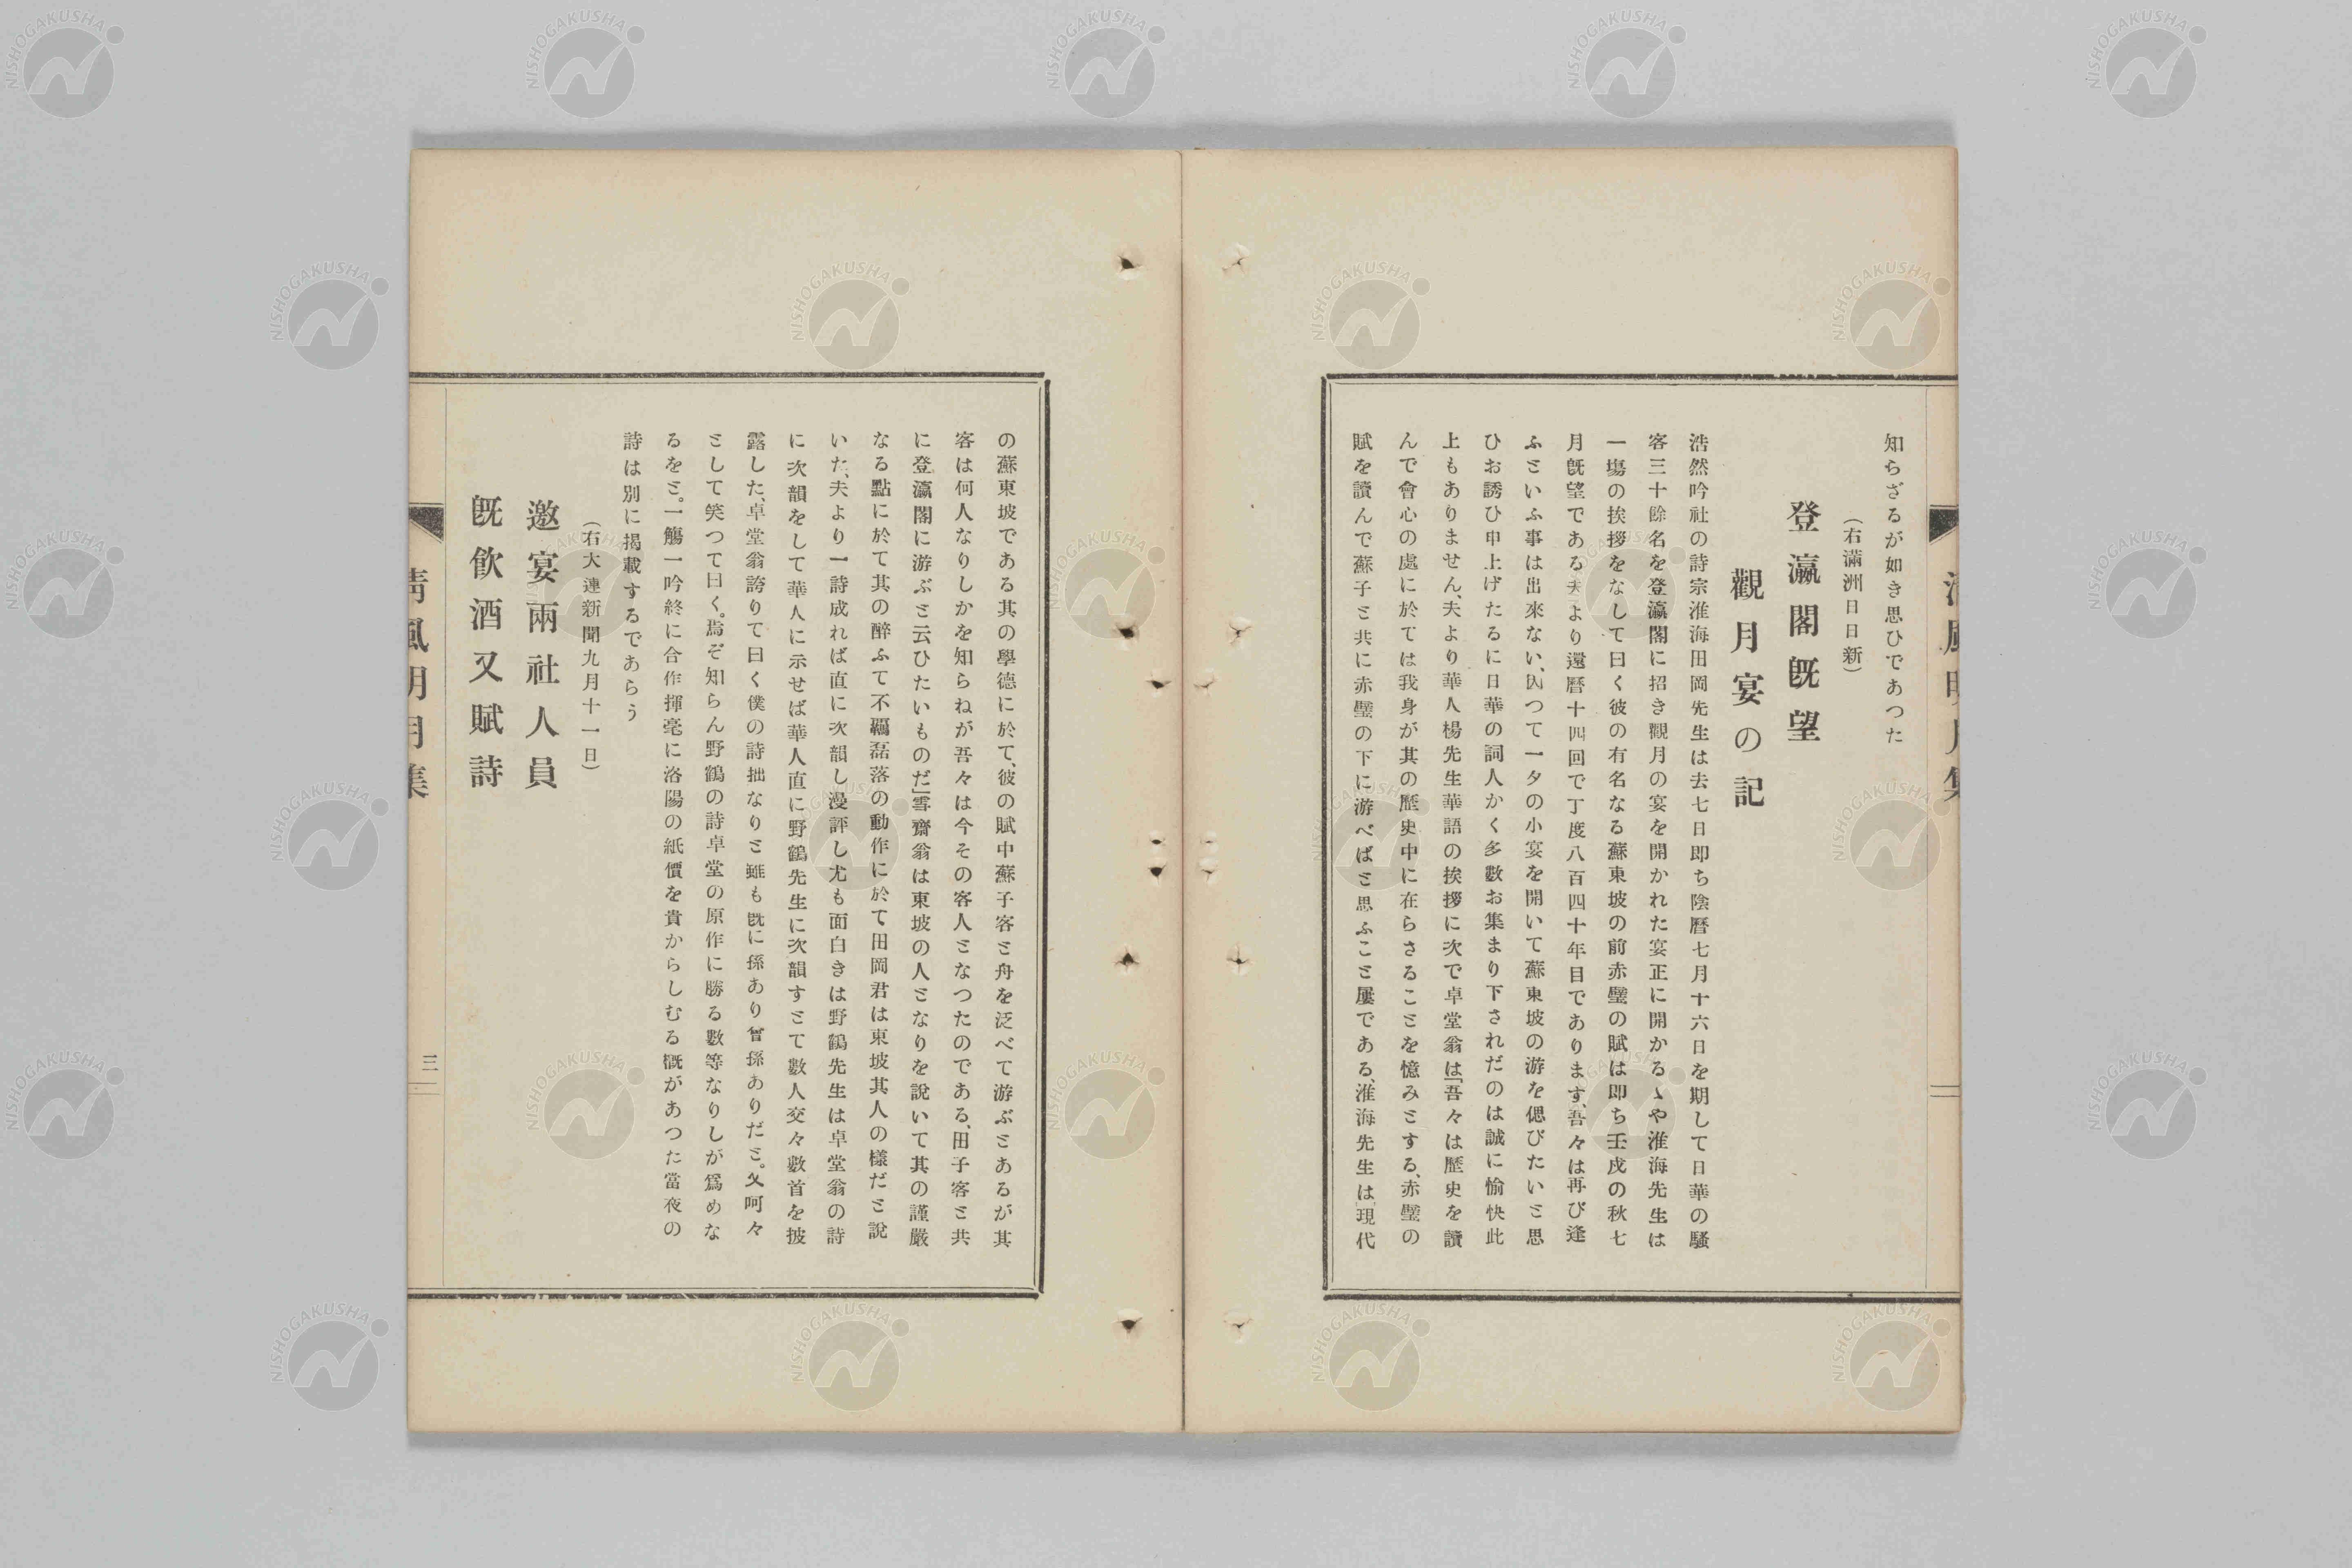 知らざるが如き思ひであつた
（右滿洲日日新）
登瀛閣既望
觀月宴の記
浩然吟社の詩宗淮海田岡先生は去七日即ち陰曆七月十六日を期して日華の騷
客三十餘名を登瀛閣に招き觀月の宴を開かれた宴正に開かるゝや淮海先生は
一塲の挨拶をなして曰く彼の有名なる蘇東坡の前赤壁の賦は即ち壬戌の秋七
月既望である夫より還曆十四回で丁度八百四十年目であります、吾々は再び逢
ふといふ事は出來ない、因つて一夕の小宴を開いて蘇東坡の游を偲びたいと思
ひお誘ひ申上げたるに日華の詞人かく多數お集まり下されだのは誠に愉快此
上もありません、夫より華人楊先生華語の挨拶に次で卓堂翁は「吾々は歷史を讀
んで會心の處に於ては我身が其の歷史中に在らさることを憶みとする、赤壁の
賦を讀んで蘇子と共に赤壁の下に游べばと思ふこと屢である、淮海先生は「現代
の蘇東坡である其の學德に於て、彼の賦中蘇子客と舟を泛べて游ぶとあるが其
客は何人なりしかを知らねが吾々は今その客人となつたのである、田子客と共
に登瀛閣に游ぶと云ひたいものだ」雪齋翁は東坡の人となりを説いて其の謹嚴
なる點に於て其の醉ふて不羈磊落の動作に於て田岡君は東坡其人の樣だと說
いた、夫より一詩成れば直に次韻し漫評し尤も面白きは野鶴先生は卓堂翁の詩
に次韻をして華人に示せば華人直に野鶴先生に次韻すとて數人交々數首を披
露した、卓堂翁誇りて曰く僕の詩拙なりと雖も既に孫あり曾孫ありだと。又呵々
として笑つて曰く。焉ぞ知らん野鶴の詩卓堂の原作に勝る數等なりしが爲めな
るをと。一觴一吟終に合作揮毫に洛陽の紙價を貴からしむる概があつた當夜の
詩は別に揭載するであらう
（右大連新聞九月十一日）
邀宴兩社人員
既飮酒又賦詩
清風明月集
三